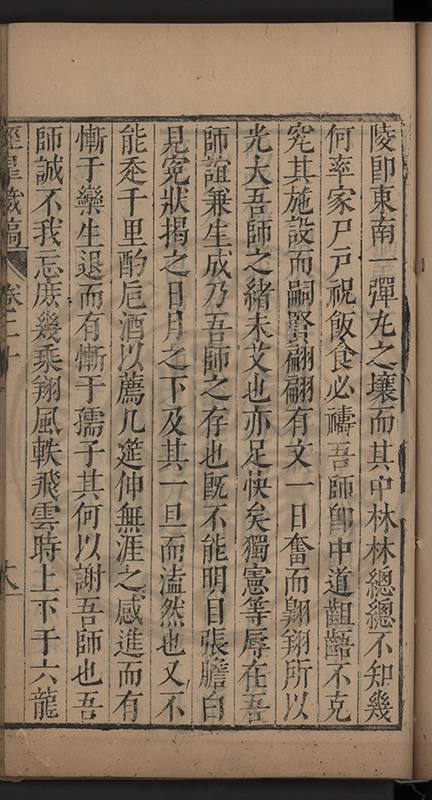 陵即東南一彈丸之壤而其中林林總總不知幾
何率家尸戸祝飯食必禱吾師即中道齟齬不克
究其施設而嗣賢翩翩有文一日奮而翺翔所以
光大吾師之緒未艾也亦足快矣獨憲等辱在吾
師誼兼生成乃吾師之存也既不能明目張膽白
見寃狀揭之日月之下及其一旦而溘然也又不
能忝千里酌巵酒以薦几筵伸無涯之感進而有
慚于欒生退而有慚于孺子其何以謝吾師也吾
師誠不我忘庶幾乘翔風軼飛雲時上下于六龍
涇臯藏稿 卷二十